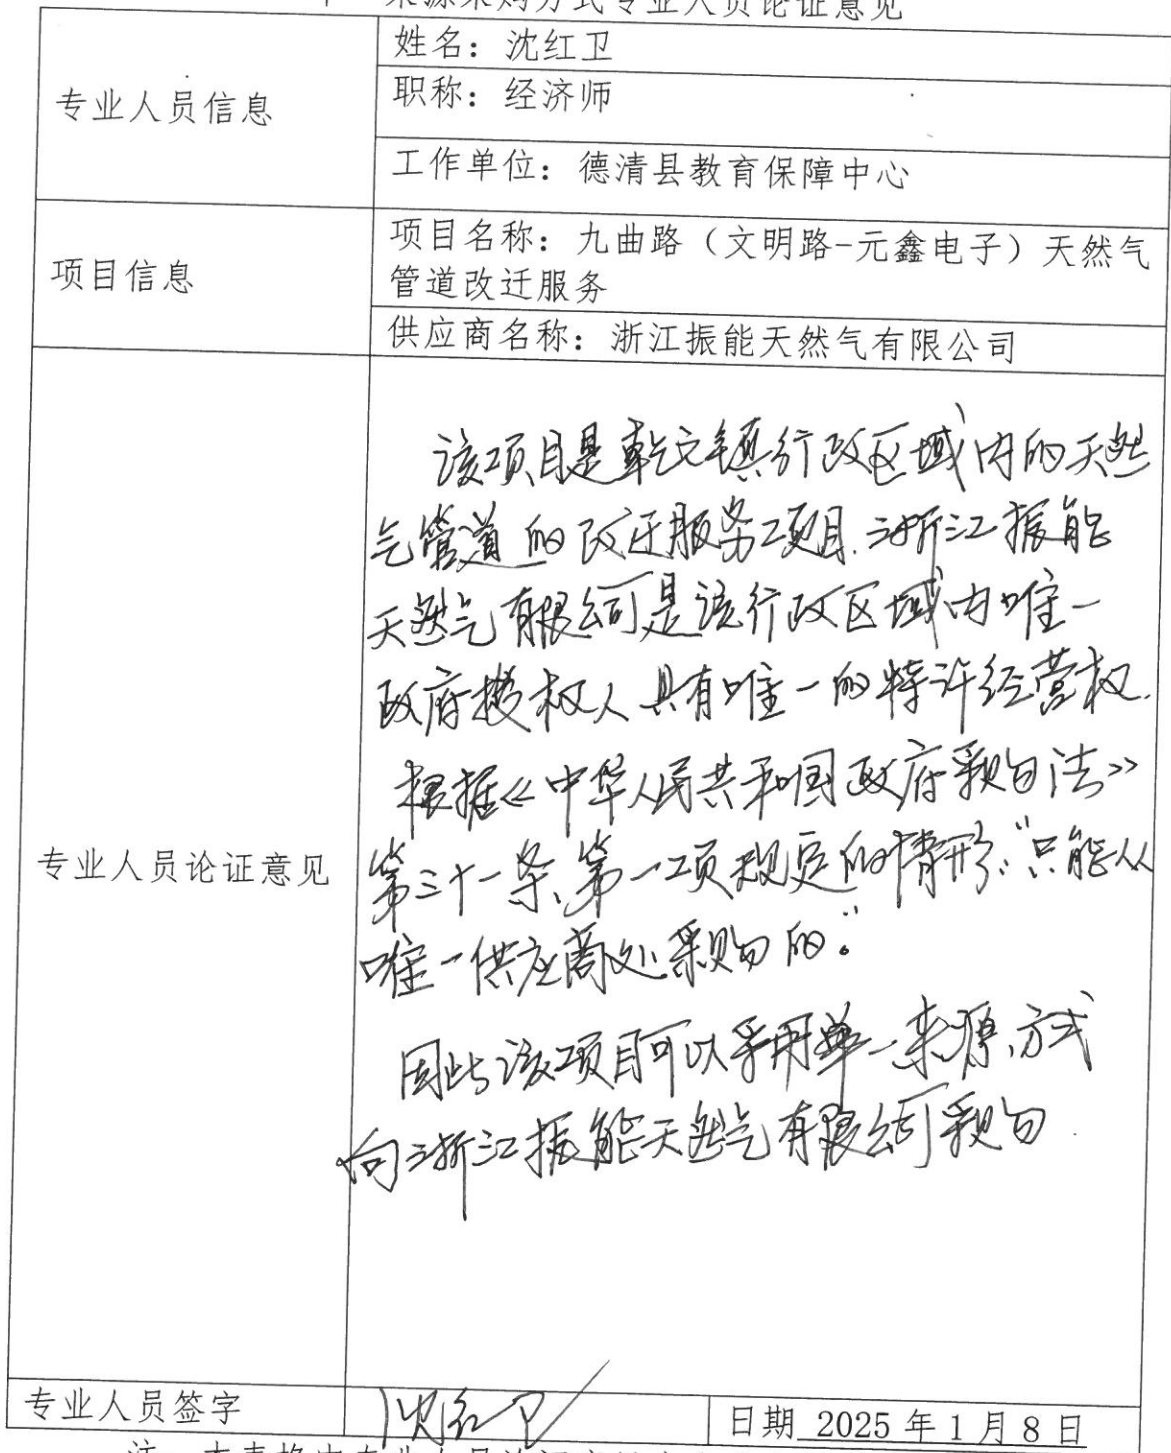 单一来源采购方式专业人员论证意见
专业人员信息
姓名：沈红卫
职称：经济师
工作单位：德清县教育保障中心
项目信息
项目名称：九曲路（文明路-元鑫电子）天然气
管道改迁服务
供应商名称：浙江振能天然气有限公司
专业人员论证意见
该项目是乾元镇行政区域内的天然
气管道的改迁服务项目.浙江振能
天然气有限公司是该行政区域内唯一
政府授权人具有唯一的特许经营权.
根据《中华人民共和国政府采购法》
第三十一条、第一项规定的情形:“只能从
唯一供应商处采购的。”
因此该项目可以采用单一来源方式
向浙江振能天然气有限公司采购
专业人员签字
沈红卫
日期 2025 年 1 月 8 日